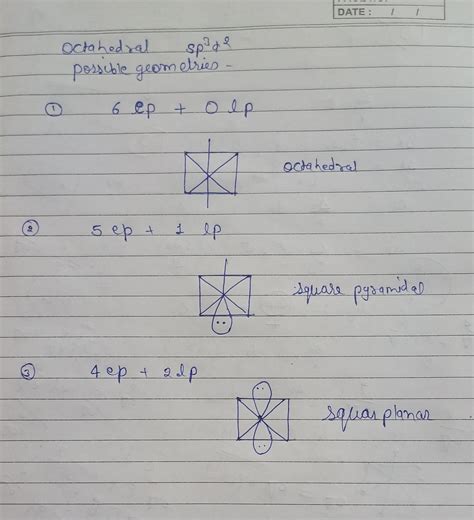 DATE : / /
Octahedral sp³d²
possible geometries -
① 6 ep + 0 lp
octahedral
② 5 ep + 1 lp
square pyramidal
③ 4 ep + 2 lp
squar planar